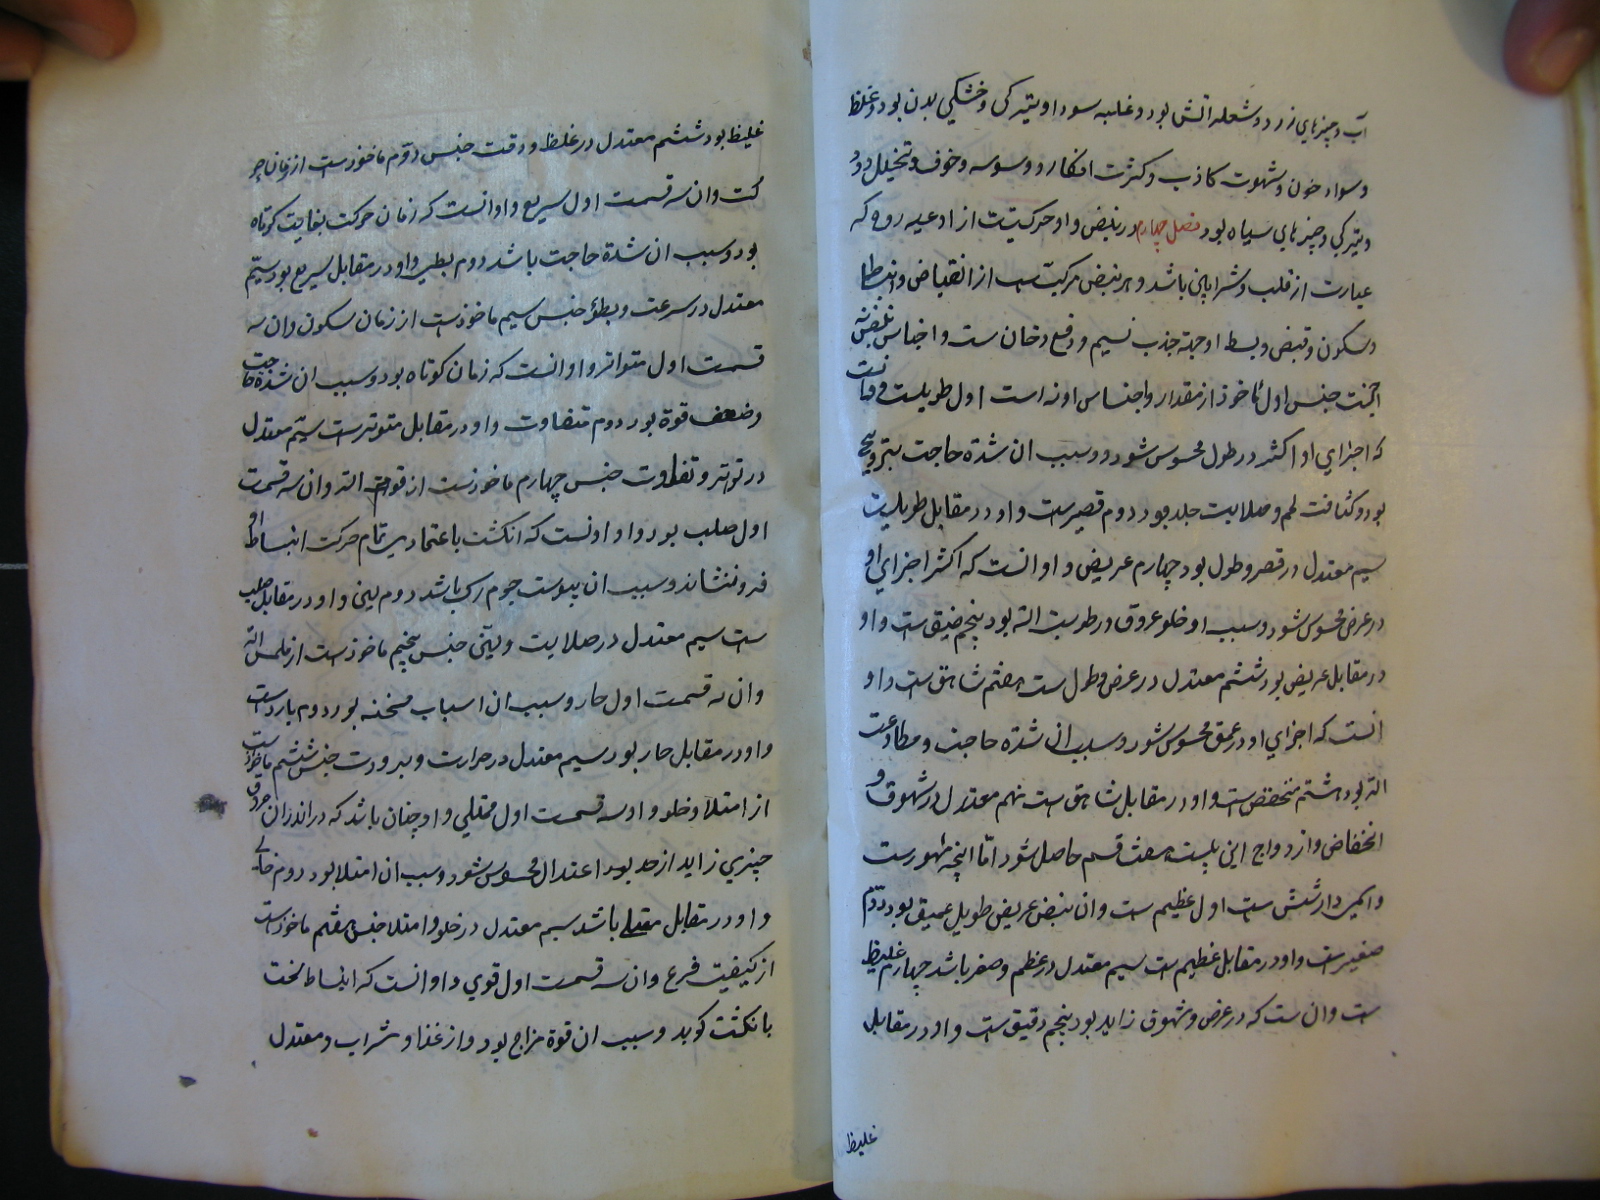 آب و چیزهای زرد و شعله اتش بود و غلبه سودا و تیرکی و خشکی بدن بود و غلظ
و سواد خون و شهوت کاذب و کثرت افکار و وسوسه و خوف و تخیلل دود
و تیرکی و چیزهای سیاه بود فصل چهارم در نبض و او حرکتیت از ادعیه روح که
عبارت از قلب و شرایانی باشد و هر نبض مرکبست از انقباض و انبساط
و سکون و قبض و بسط او جهة جذب نسیم و دفع دخان ست و اجناس نبض
جنس اول ماخوذ از مقدار و اجناس او نه است اول طویلست و انست
که اجزای او اکثر در طول محسوس شود و سبب ان شدة حاجت بترویح
بود و کثافت لحم و صلابت جلد بود دوم قصیرست و او در مقابل طویلست
سیم معتدل در قصر و طول بود چهارم عریض و او انست که اکثر اجزای او
در عرض محسوس شود و سبب او خلو عروق و رطوبت اله بود پنجم ضیق ست و او
در مقابل عریض بود ششم معتدل در عرض و طول ست هفتم شاهق ست و او
انست که اجزای او در عمق محسوس شود و سبب ان شدة حاجت و مطاوعت
اله بود هشتم منخفض ست و او در مقابل شاهق ست نهم معتدل در شهوق و
انخفاض و از دواج این بیست هفت قسم حاصل شود امّا انچه مشهورست
و شش ست اول عظیم ست و ان نبض عریض طویل عمیق بود دوم
صغیرست و او در مقابل عظیم ست سیم معتدل در عظم و صغر باشد چهارم غلیظ
ست و ان ست که در عرض و شهوق زاید بود پنجم دقیق ست و او در مقابل
غلیظ
غلیظ بود ششم معتدل در غلظ و دقت جنس دوم ماخوذست از زمان حر
کت و ان سه قسمت اول سریع و او انست که زمان حرکت بغایت کوتاه
بود و سبب ان شدة حاجت باشد دوم بطی و او در مقابل سریع بود سیم
معتدل در سرعت و بطؤ جنس سیم ماخوذست از زمان سکون و ان سه
قسمت اول متواتر و او انست که زمان کوتاه بود و سبب ان شدة حاجت
و ضعف قوة بود دوم متفاوت و او در مقابل متوترست سیم معتدل
در توتر و تفاوت جنس چهارم ماخوذست از قوام اله و ان سه قسمت
اول صلب بود و او اونست که انکشت باعتمادی تمام حرکت انبساط او
فرو ننشاند و سبب ان یبوست جرم رک باشد دوم لین و او در مقابل صلب
ست سیم معتدل در صلابت و لینی جنس پنجم ماخوذست از ملمس اله
و ان سه قسمت اول حار و سبب ان اسباب مسخنه بود دوم باردست
و او در مقابل حار بود سیم معتدل در حرارت و برودت جنس ششم ماخوذست
از امتلا و خلو و او سه قسمت اول ممتلی و او چنان باشد که در اندران عروق
چیزی زاید از حد بود اعتدال محسوس شود و سبب ان امتلا بود دوم خالی
و او در مقابل ممتلی باشد سیم معتدل در خلو و امتلا جنس هفتم ماخوذست
از کیفیت قرع و ان سه قسمت اول قوی و او انست که انبساط سخت
بانکشت کوبد و سبب ان قوة مزاج بود و از غذا و شراب و معتدل